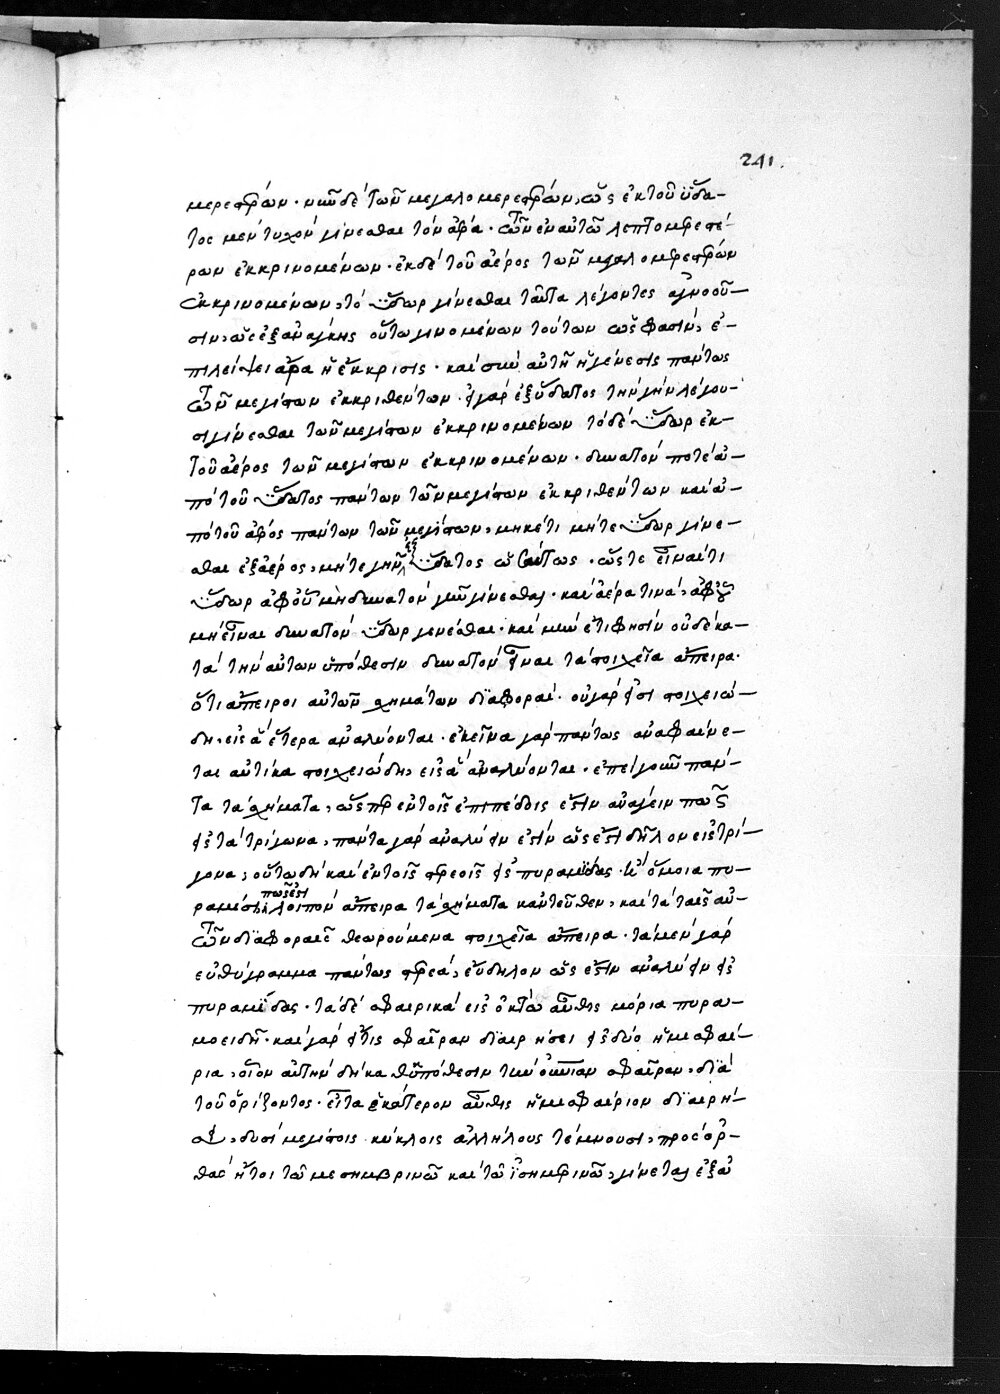 241.
μερεστέρων · νῦν δὲ τῶν μεγαλομερεστέρων, ὡς ἐκ τοῦ ὕδα-
τος μὲν τυχὸν γίνεσθαι τὸν ἀέρα · τῶν ἐν αὐτῶ λεπτομερεστέ-
ρων ἐκκρινομένων · ἐκ δὲ τοῦ ἀέρος τῶν μεγαλομερεστέρων
ἐκκρινομένων, τὸ ὕδωρ γίνεσθαι ταῦτα λέγοντες ἀγνοοῦ-
σιν, ὡς ἐξ ἀνάγκης οὕτω γινομένων τούτων ὥς φασιν, ἐ-
πιλείψει ἄρα ἡ ἔκκρισις · καὶ σὺν αὐτῆ ἡ γένεσις πάντως
τῶν μεγίστων ἐκκριθέντων · εἰ γὰρ ἐξ ὕδατος τὴν γῆν λέγου-
σι γίνεσθαι τῶν μεγίστων ἐκκρινομένων τὸ δὲ ὕδωρ ἐκ
τοῦ ἀέρος τῶν μεγίστων ἐκκρινομένων · δυνατόν ποτε ἀ-
πὸ τοῦ ὕδατος πάντων τῶν μεγίστων ἐκκριθέντων καὶ ἀ-
πὸ τοῦ ἀέρος πάντων τῶν μεγίστων, μηκέτι μήτε ὕδωρ γίνε-
σθαι ἐξ ἀέρος, μήτε γῆν ἐξ ὕδατος ὡσαύτως · ὥστε εἶναί τι
ὕδωρ ἀφ' οὗ μὴ δυνατὸν γῆν γίνεσθαι · καὶ ἀέρα τινά, ἀφ' οὗ
μὴ εἶναι δυνατὸν ὕδωρ γενέσθαι · καὶ μὴν ἔτι φησὶν οὐδὲ κα-
τὰ τὴν αὐτῶν ὑπόθεσιν δυνατὸν εἶναι τὰ στοιχεῖα ἄπειρα ·
ὅτι ἄπειροι αὐτῶν σχημάτων διαφοραί · οὐ γάρ εἰσι στοιχειώ-
δη, εἰς ἃ ἕτερα ἀναλύονται · ἐκεῖνα γὰρ πάντως ἀναφαίνε-
ται αὐτίκα στοιχειώδη, εἰς ἃ ἀναλύονται · ἐπεὶ γοῦν πάν-
τα τὰ σχήματα, ὥσπερ ἐν τοῖς ἐπιπέδοις ἔστιν ἀνάγειν πως
εἰς τὰ τρίγωνα, πάντα γὰρ ἀναλύειν ἐστὶν ὡς ἔστι δῆλον εἰς τρί-
γωνα, οὕτω δὴ καὶ ἐν τοῖς στερεοῖς εἰς πυραμίδας · ἢ ὅμοια πυ-
ραμίσι, πῶς ἐστι λοιπὸν ἄπειρα τὰ σχήματα κἀντεῦθεν, καὶ τὰ ταῖς αὐ-
τῶν διαφοραῖς θεωρούμενα στοιχεῖα ἄπειρα · τὰ μὲν γὰρ
εὐθύγραμμα πάντως στερεά, εὔδηλον ὡς ἔστιν ἀναλύειν εἰς
πυραμίδας · τὰ δὲ σφαιρικὰ εἰς ὀκτὼ αὖθις μόρια πυρα-
μοειδῆ · καὶ γὰρ εἴ τις σφαῖραν διαιρήσει εἰς δύο ἡμισφαί-
ρια, οἷον αὐτὴν δὴ καθ' ὑπόθεσιν τὴν οὐσίαν σφαῖραν, διὰ
τοῦ ὁρίζοντος · εἶτα ἑκάτερον αὖθις ἡμισφαίριον διαιρή-
σει, δυσὶ μεγίστοις κύκλοις ἀλλήλους τέμνουσι, πρὸς ὀρ-
θὰς ἤτοι τῶ μεσημβρινῶ καὶ τῶ ἰσημερινῶ, γίνεται ἐξ ἀ